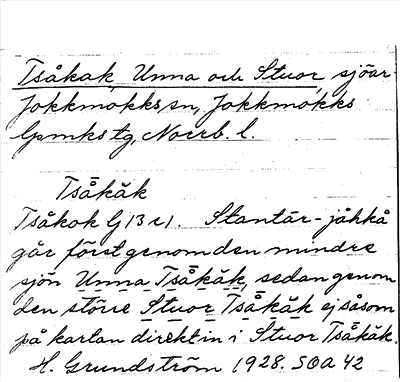 Tsåkak, Unna och Stuor, sjöar
Jokkmokks sn, Jokkmokks
lpmks tg, Norrb. l.
Tsåkåk
Tsåkok G 13 r 1. Stantär-jåhkå
går först genom den mindre
sjön Unna Tsåkåk, sedan genom
den större Stuor Tsåkåk ej såsom
på kartan direkt in i Stuor Tsåkåk.
H. Grundström 1928. SOA 42